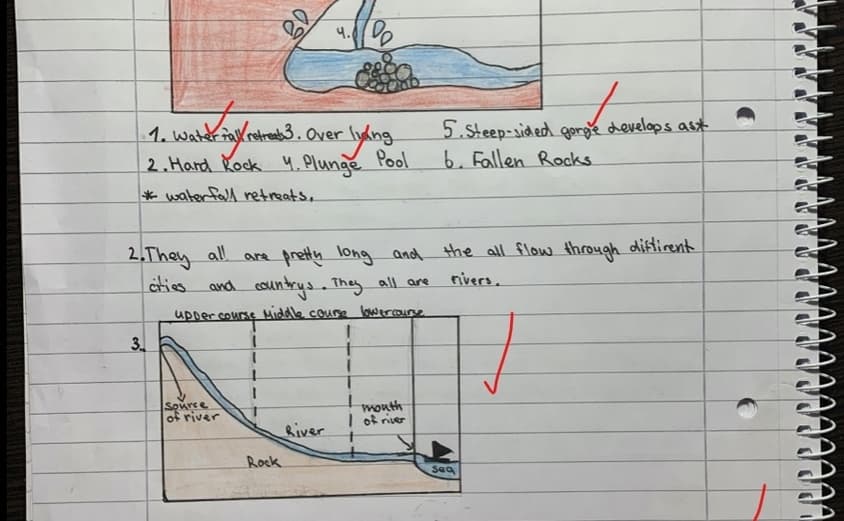 4.
1. Waterfall retreats 3. Over hang 5. Steep-sided gorge develops as*
2. Hard Rock 4. Plunge Pool 6. Fallen Rocks
* waterfall retreats.
2. They all are pretty long and the all flow through diffirent
cities and countrys. They all are rivers.
upper course Middle course lower course
3.
source
of river
mouth
of river
River
Rock
sea